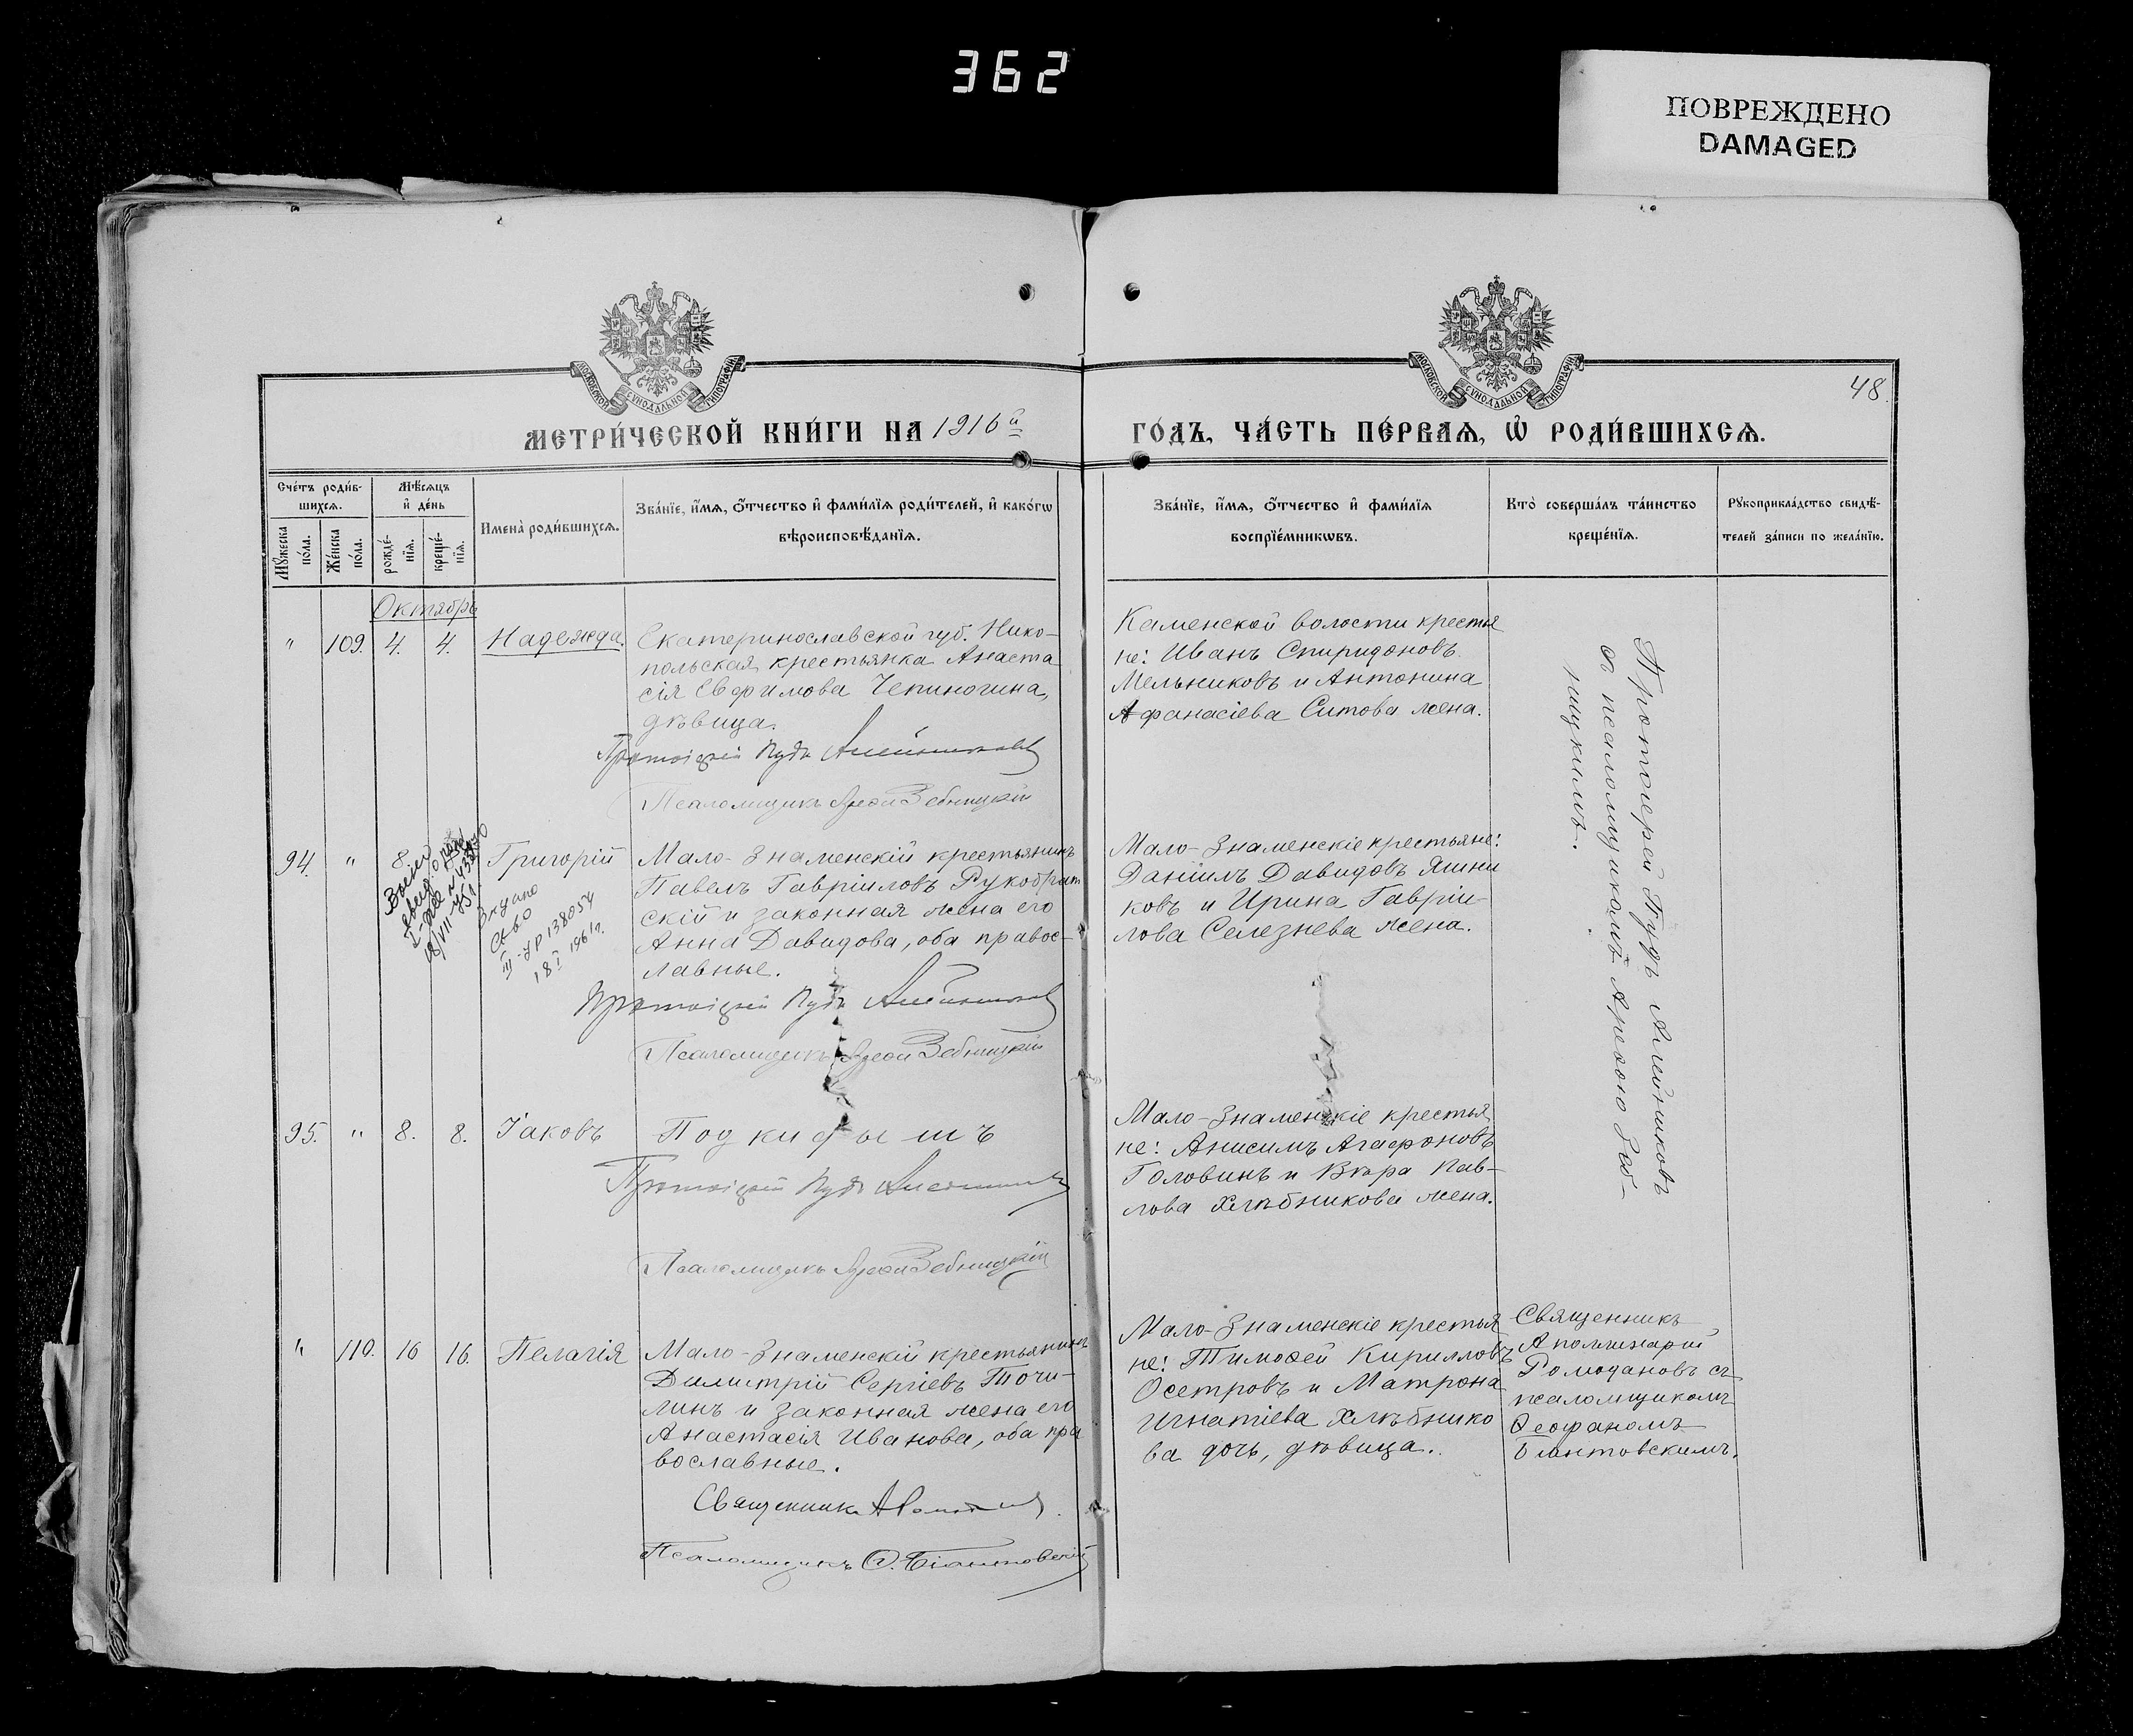 362
ПОВРЕЖДЕНО
DAMAGED
МОСКОВСКОЙ СУНОДАЛЬНОЙ ТИПОГРАФІИ
МОСКОВСКОЙ СУНОДАЛЬНОЙ ТИПОГРАФІИ
48.
МЕТРИ́ЧЕСКОЙ КНИ́ГИ НА 1916й
ГО́ДЪ, ЧА́СТЬ ПЕ́РВАЯ, Ѡ РОДИ́ВШИХСЯ.
Сче́тъ роди́в-
шихся.
Мꙋ́жеска
по́ла.
Же́нска
по́ла.
Мѣ́сяцъ
и҆ де́нь
рожде́-
нїя.
креще́-
нїя.
И҆мена̀ роди́вшихся.
Зва́нїе, и҆́мя, ѻ҆́тчество и҆ фами́лїя роди́телей, и҆ како́гѡ
вѣроисповѣ́данїя.
Зва́нїе, и҆́мя, ѻ҆́тчество и҆ фами́лїя
воспрїе́мникѡвъ.
Кто̀ соверша́лъ та́инство
креще́нїя.
Рꙋкоприкла́дство свидѣ́-
телей за́писи по жела́нїю.
Октябрь
" 109. 4. 4. Надежда.
Екатеринославской губ. Нико-
польская крестьянка Анаста
сія Евфимова Чепиногина,
дѣвица.
Протоіерей Пудъ Алейниковъ
Псаломщикъ Арсеній
Каменской волости крестья
не: Иванъ Спиридоновъ
Мельниковъ и Антонина
Афанасіева Ситова жена.
Протоіерей Пудъ Алейниковъ
съ псаломщикомъ
ницкимъ.
94. " 8. Григорій
18/VII-
Выдано
Св-во
III-УР 138054
18 I 1961г.
Мало-Знаменскій крестьянинъ
Павелъ Гавріиловъ Рукобрат
скій и законная жена его
Анна Давидова, оба правос-
лавные.
Протоіерей Пудъ Алейниковъ
Псаломщикъ
Мало-Знаменскіе крестьяне:
Даніилъ Давидовъ Яшни
ковъ и Ирина Гавріи-
лова Селезнева жена.
95. " 8. 8. Іаковъ
Подкидышъ
Протоіерей Пудъ Алейниковъ
Псаломщикъ
Мало-Знаменскіе крестья
не: Анисимъ Агафоновъ
Головинъ и Вѣра Пав-
лова Хлѣбникова жена.
" 110. 16 16. Пелагія
Мало-Знаменскій крестьянинъ
Димитрій Сергіевъ Точи-
линъ и законная жена его
Анастасія Иванова, оба пра
вославные.
Священникъ
Псаломщикъ Ѳ. Біантовскій
Мало-Знаменскіе крестья
не: Тимоѳей Кирилловъ
Осетровъ и Матрона
Игнатіева Хлѣбнико
ва дочь, дѣвица.
Священникъ
Аполлинарій
Ромодановъ съ
псаломщикомъ
Ѳеофаномъ
Біантовскимъ.